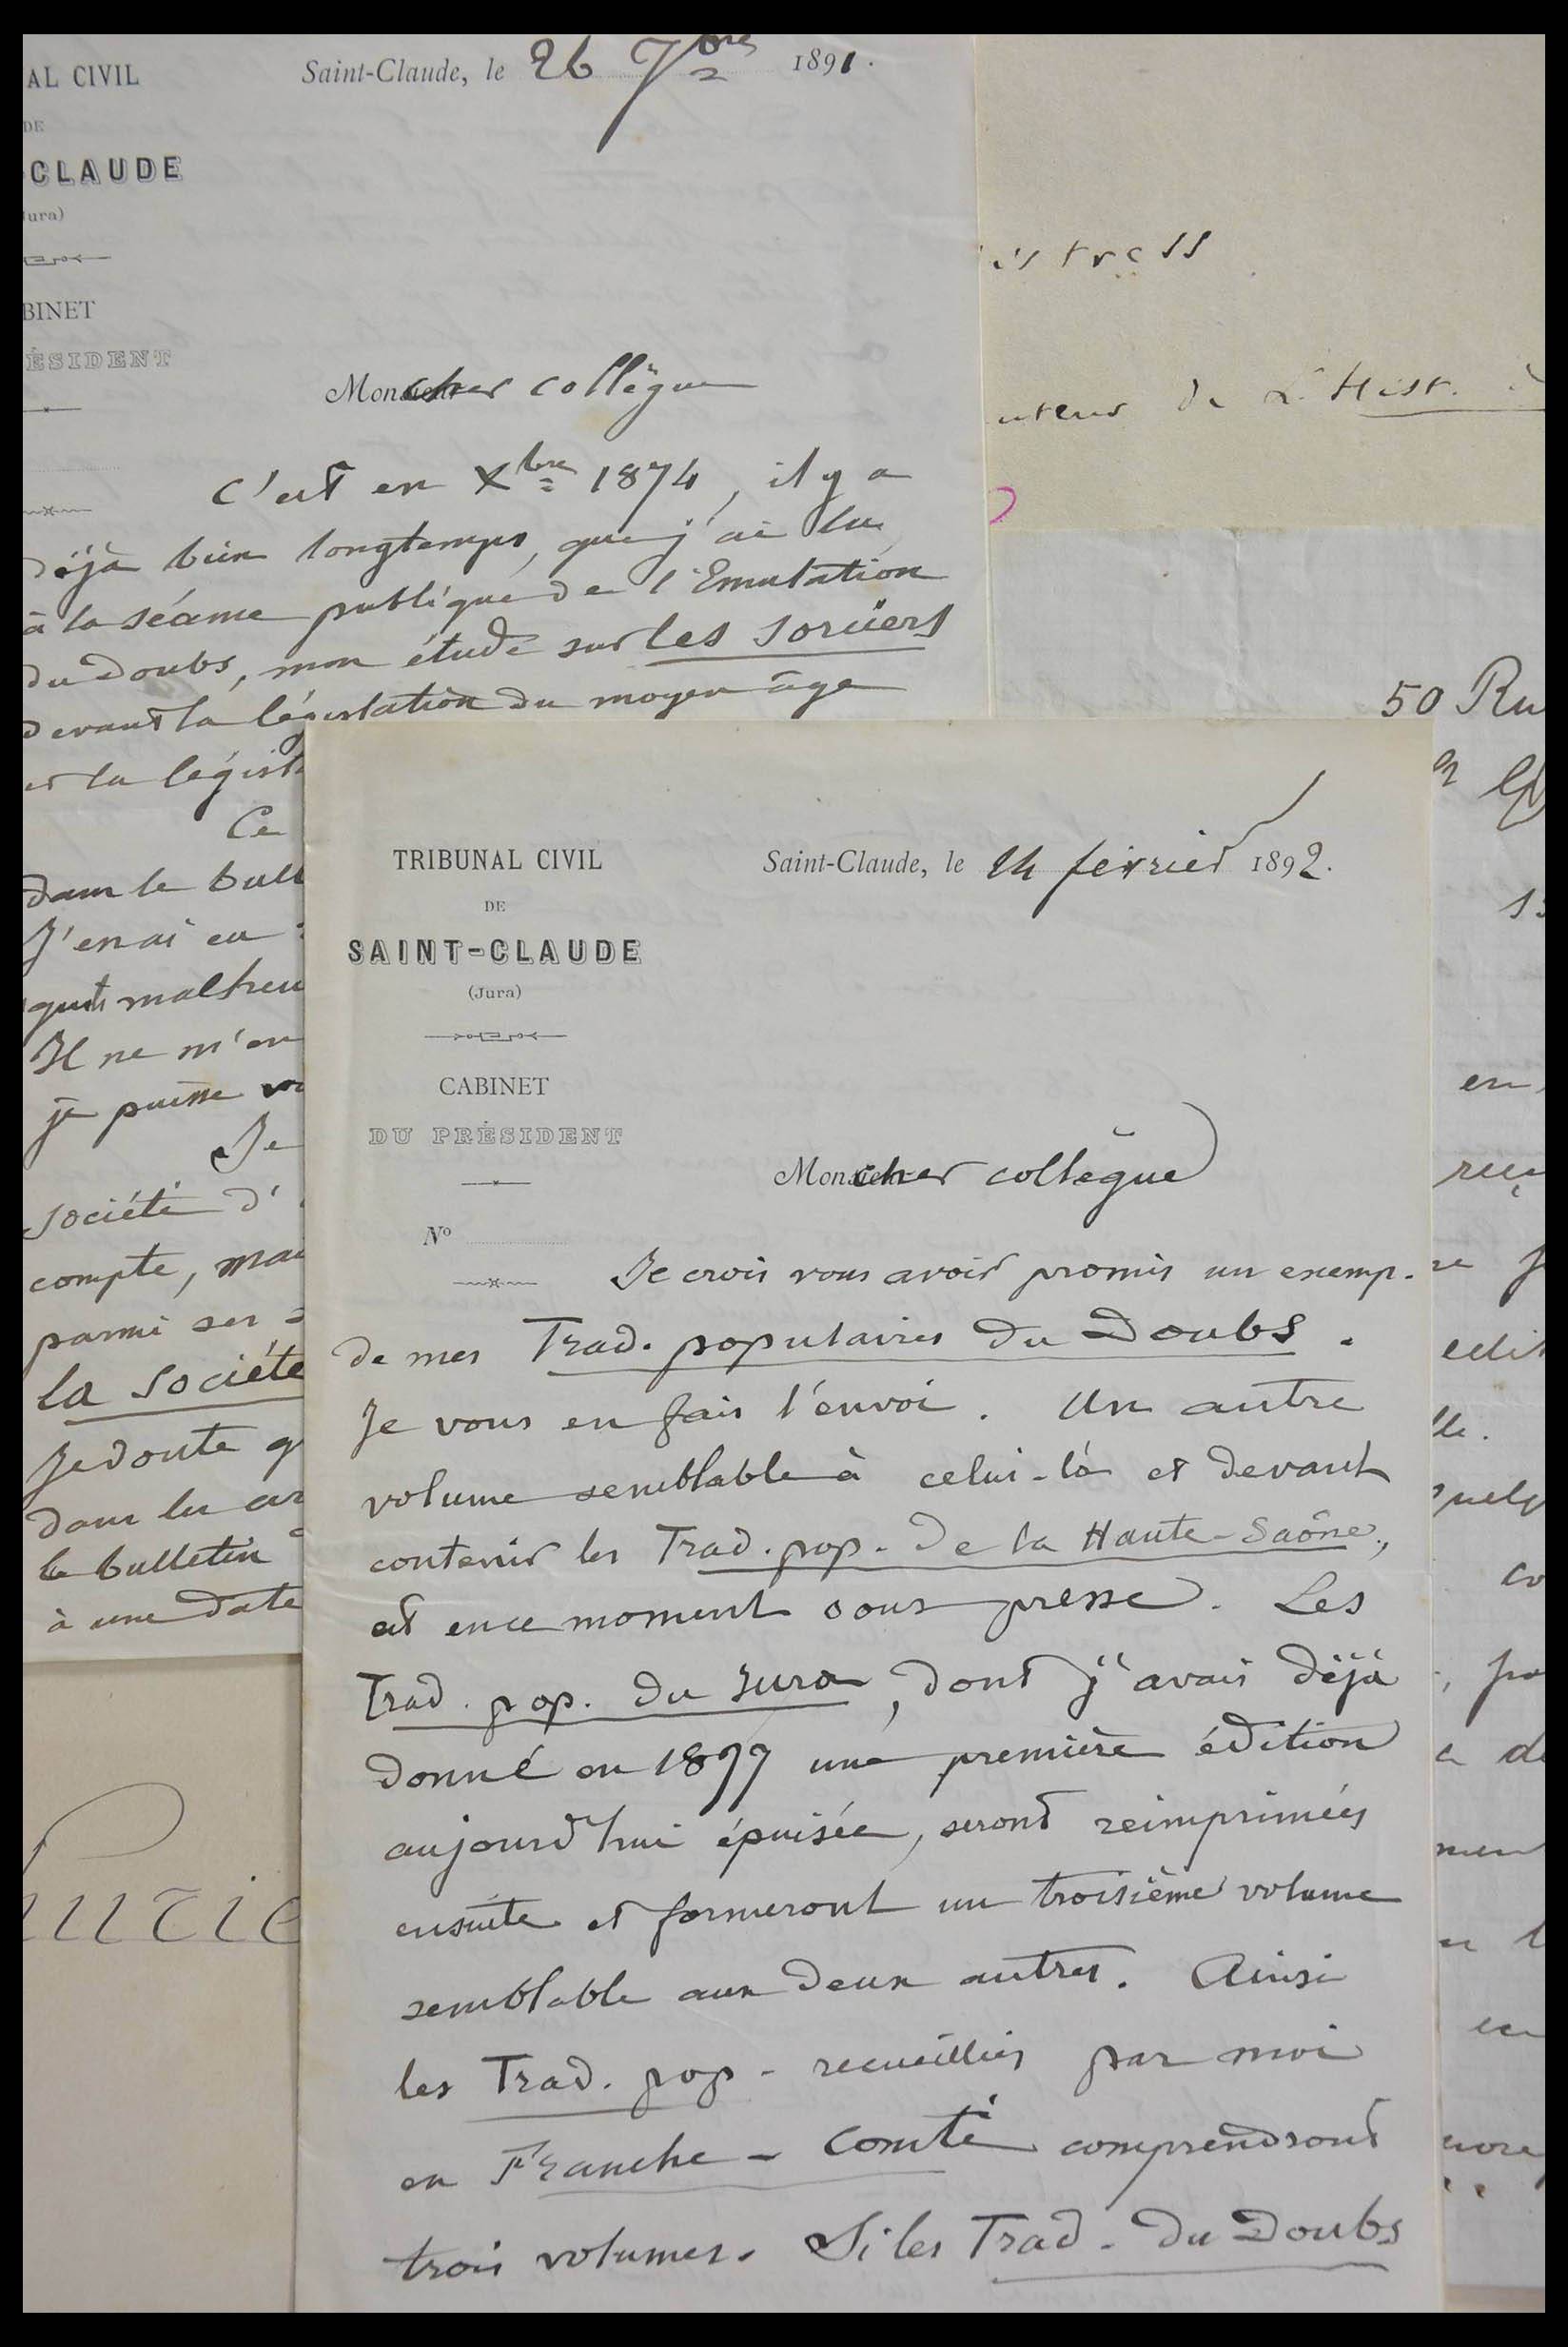 AL CIVIL
DE
CLAUDE
ura)
BINET
ÉSIDENT
Saint-Claude, le 26 7bre 1891.
Mon cher collègue
C'est en Xbre 1874, il y a
déjà bien longtemps, que j'ai lu
à la séance publique de l'Emulation
du Doubs, mon étude sur les sorciers
devant la législation du moyen âge
et la législ
Ce
dans le bull
J'en ai eu
malheu
Il ne m'en
je puisse
Je
société d'
compte, mai
parmi ses
la société
Je doute q
dans les ar
le bulletin
à une date
uteur de L'Hist.
50 Ru
TRIBUNAL CIVIL
DE
SAINT-CLAUDE
(Jura)
CABINET
DU PRÉSIDENT
No
Saint-Claude, le 14 février 1892.
Mon cher collègue
Je crois vous avoir promis un exemp.
de mes Trad. populaires du Doubs.
Je vous en fais l'envoi. Un autre
volume semblable à celui-là et devant
contenir les Trad. pop. de la Haute-Saône,
est en ce moment sous presse. Les
Trad. pop. du Jura, dont j'avais déjà
donné en 1877 une première édition
aujourd'hui épuisée, seront reimprimées
ensuite et formeront un troisième volume
semblable aux deux autres. Ainsi
les Trad. pop. recueillies par moi
en Franche-Comté comprendront
trois volumes. Si les Trad. du Doubs